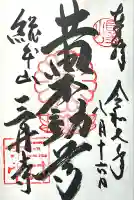 奉拝
令和
月十六日
黄不動尊
総本山 三井寺